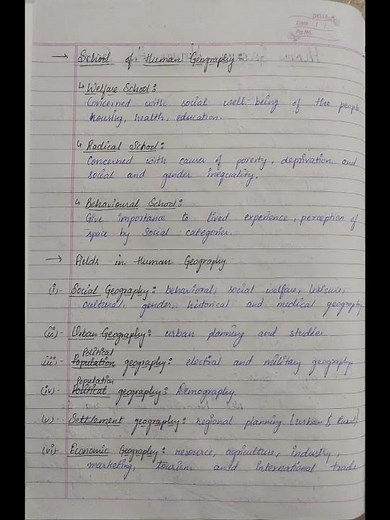 → School of Human Geography:
↳ Welfare School:
Concerned with social well-being of the people
housing, health, education.
↳ Radical School:
Concerned with causes of poverty, deprivation and
social and gender inequality.
↳ Behavioural School:
Give importance to lived experience, perception of
space by social categories.
→ Fields in Human Geography
(i)- Social Geography: behavioral, social welfare, leisure,
cultural, gender, historical and medical geography
(ii)- Urban Geography: urban planning and studies.
Political
(iii)- Population geography: electoral and military geography
Population
(iv)- Political geography: Demography.
(v)- Settlement geography: regional planning (urban & rural)
(vi)- Economic Geography: resource, agriculture, industry,
marketing, tourism and International trade